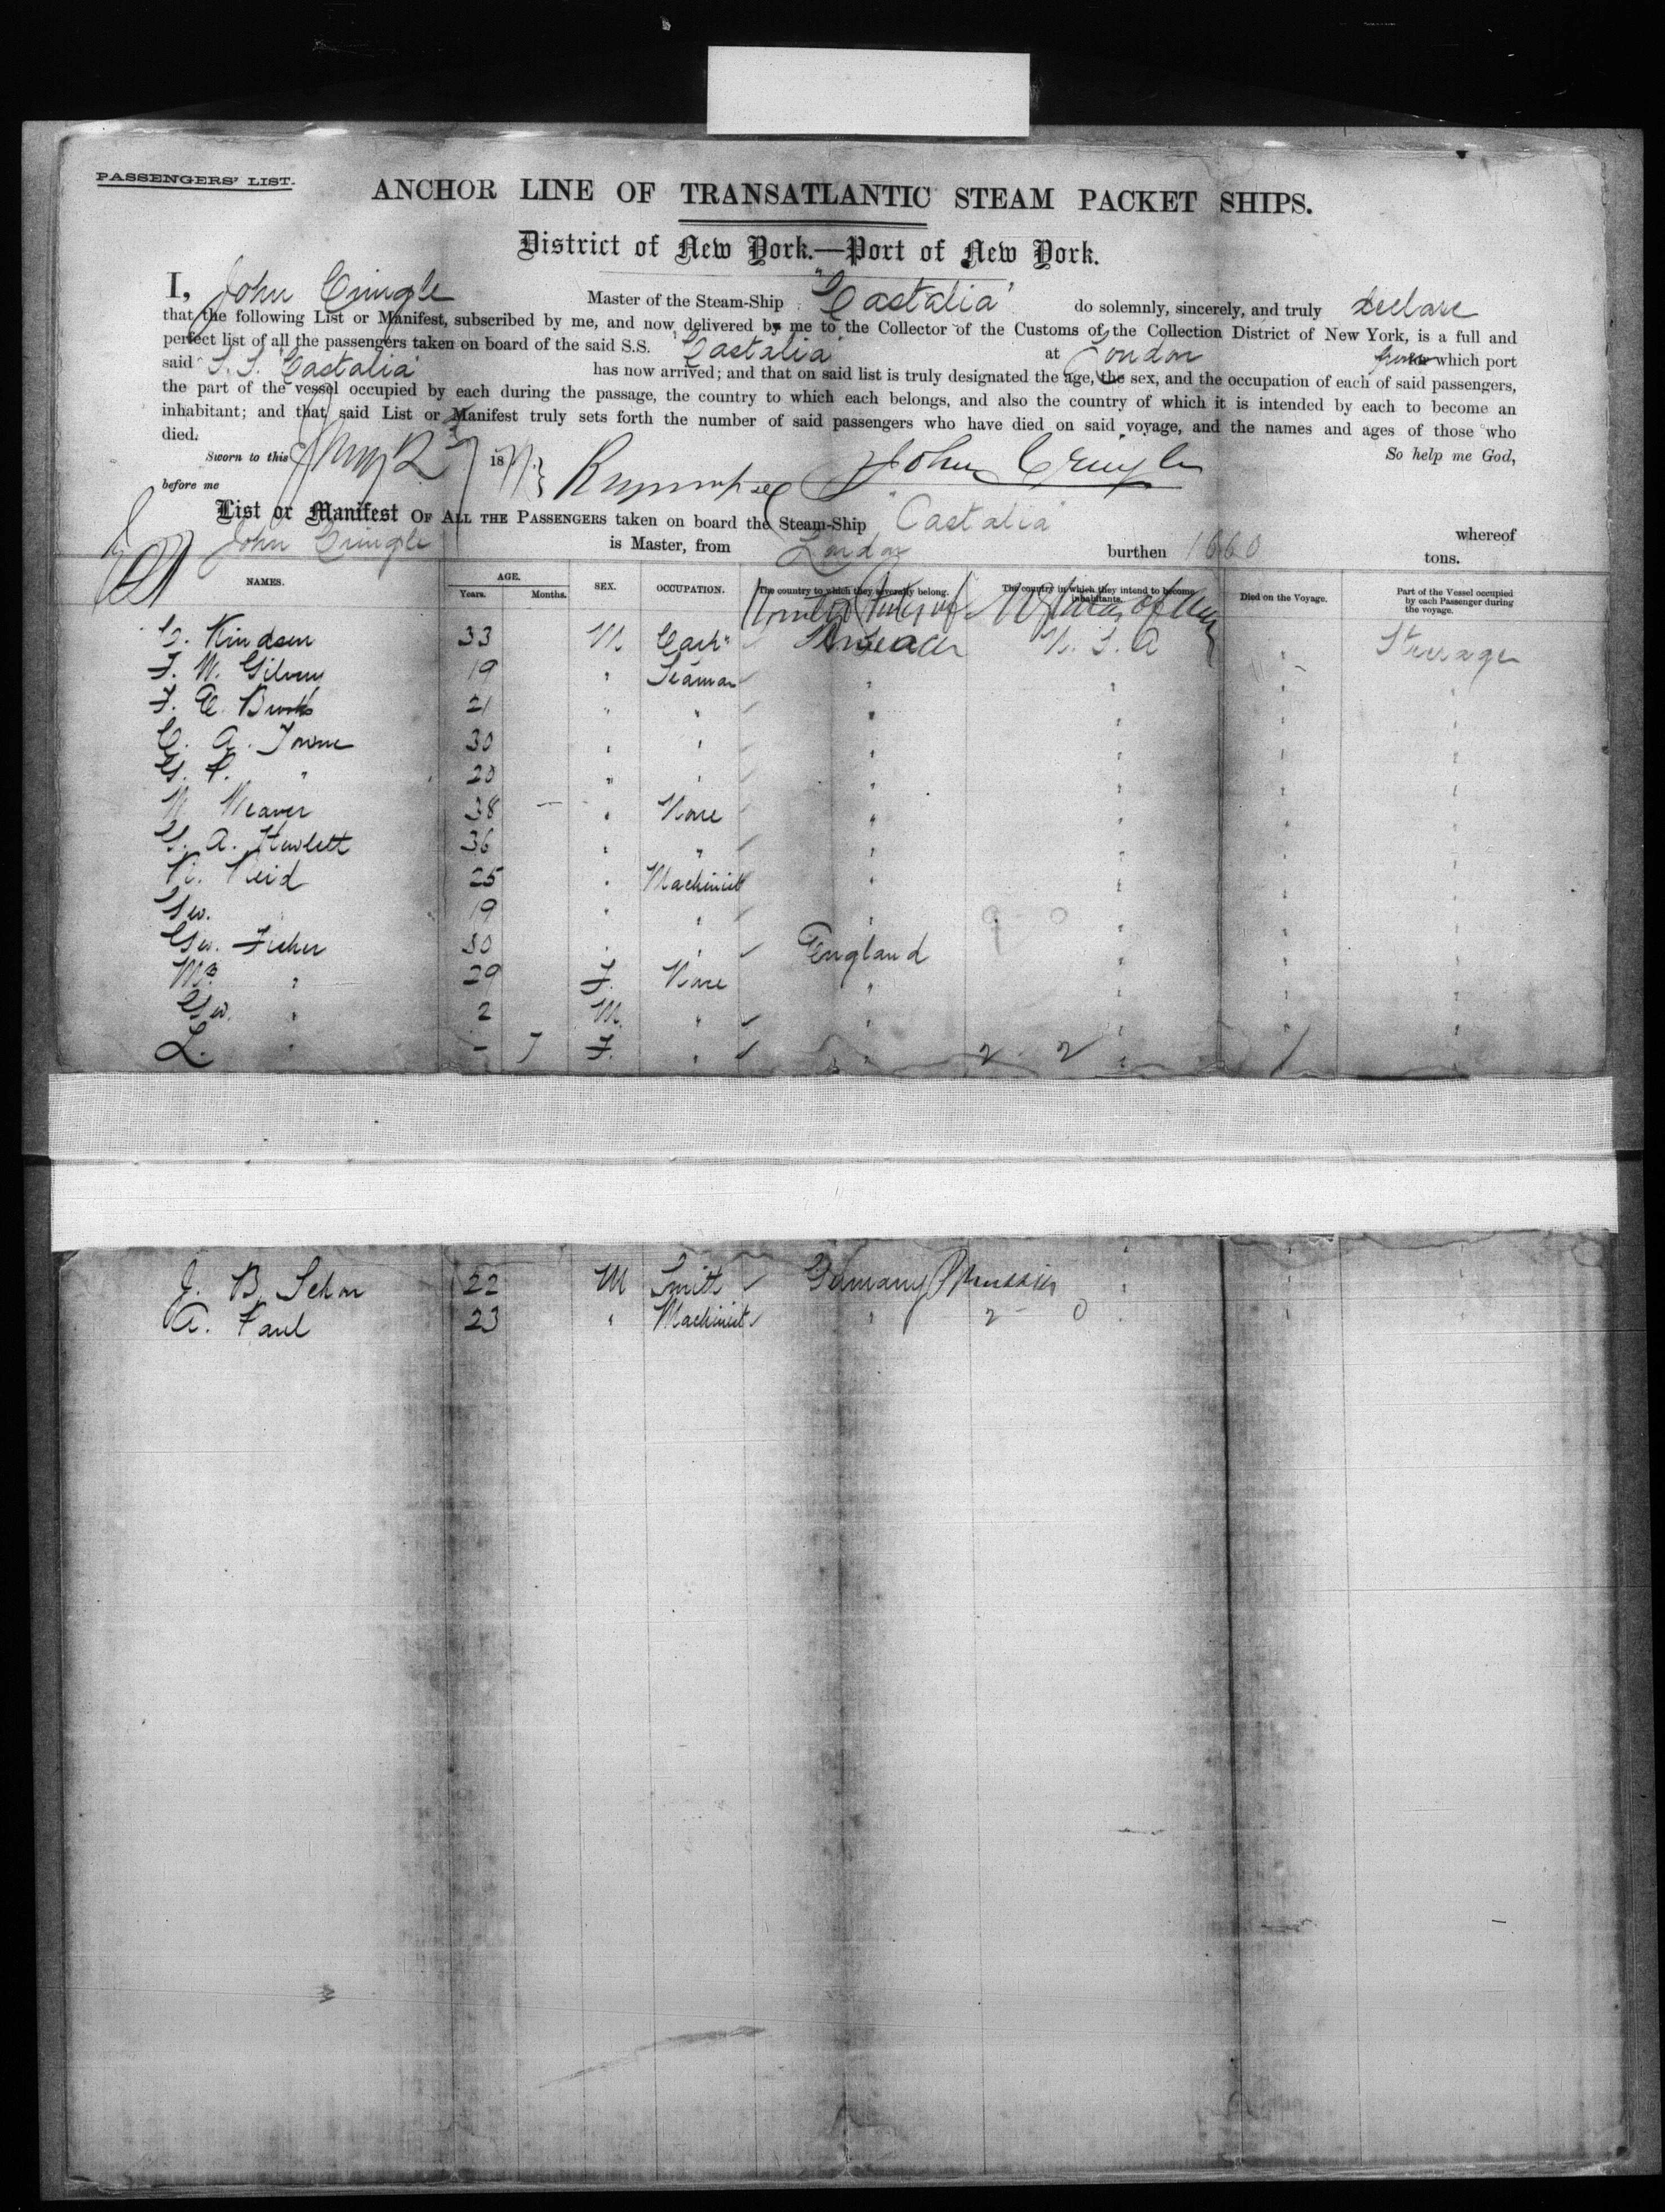 PASSENGERS' LIST.
ANCHOR LINE OF TRANSATLANTIC STEAM PACKET SHIPS.
District of New York.—Port of New York.
I, John Cringle Master of the Steam-Ship "Castalia" do solemnly, sincerely, and truly declare
that the following List or Manifest, subscribed by me, and now delivered by me to the Collector of the Customs of the Collection District of New York, is a full and
perfect list of all the passengers taken on board of the said S.S. "Castalia" at London from which port
said S.S. "Castalia" has now arrived; and that on said list is truly designated the age, the sex, and the occupation of each of said passengers,
the part of the vessel occupied by each during the passage, the country to which each belongs, and also the country of which it is intended by each to become an
inhabitant; and that said List or Manifest truly sets forth the number of said passengers who have died on said voyage, and the names and ages of those who
died.
Sworn to this 18 John Cringle So help me God,
before me
List or Manifest OF ALL THE PASSENGERS taken on board the Steam-Ship "Castalia" whereof
John Cringle is Master, from London burthen 1660 tons.
NAMES. AGE. SEX. OCCUPATION. The country to which they severally belong. The country in which they intend to become inhabitants. Died on the Voyage. Part of the Vessel occupied by each Passenger during the voyage.
Years. Months.
33 M U.S.A Steerage
F. W. 19 " Seaman " " " "
F. 21 " " " " " "
C. A. Towne 30 " " " " " "
G. F. " 20 " " " " " "
W Weaver 38 — " None " " " "
G. A. Hewlett 36 " " " " " "
R. Reid 25 " Machinist " " " "
Geo. 19 " " " " " "
Geo. Fisher 30 " " England " " "
Mrs " 29 F. None " " " "
Geo. " 2 M. " " " " "
L. " - 7 F. " " 2 2 " "
J. B. 22 M Smith Germany Prussia " " "
A. Paul 23 " Machinist " 2 - 0 " " "